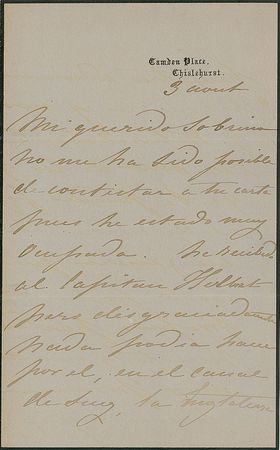 Camden Place,
Chislehurst.
3 aout
Mi querido Sobrino
no me ha sido posible
de contestar a tu carta
pues he estado muy
ocupada. he recibido
al Capitan
pero disgraciadamente
nada podia hacer
por el, en el canal
de Suez, la Inglaterra